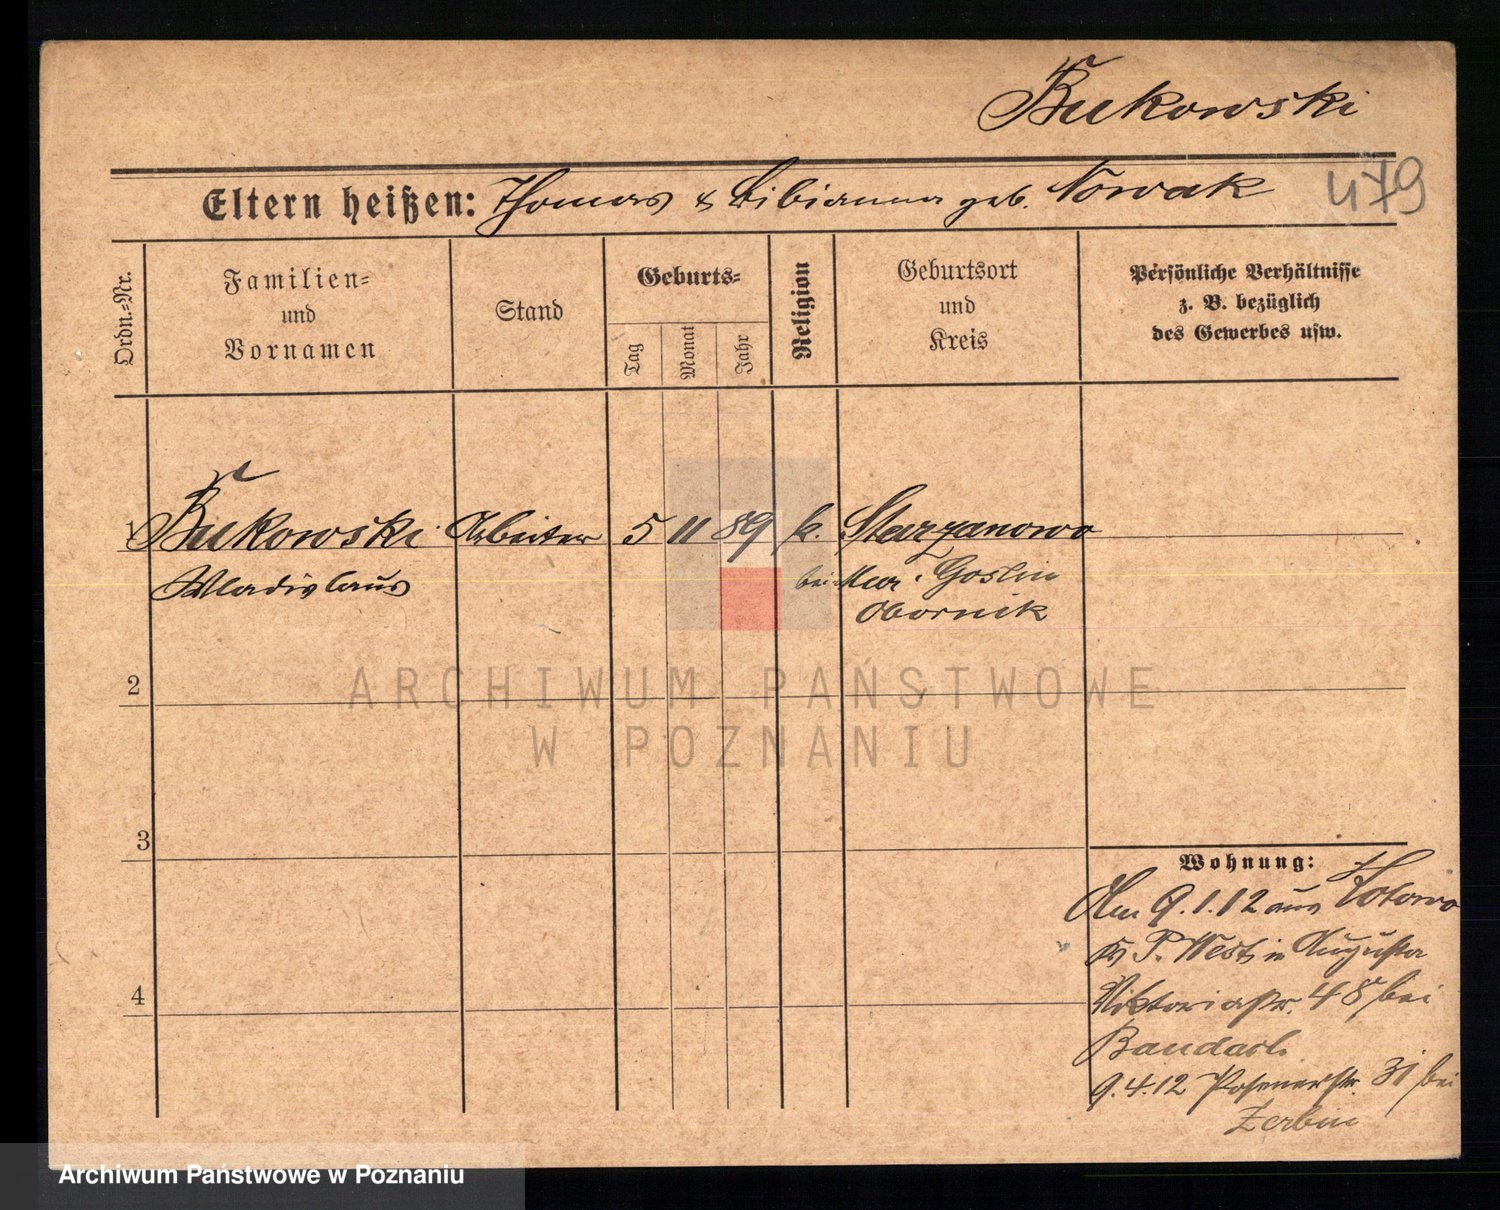 Bukowski
Eltern heißen: Thomas & Bibianna geb. Nowak
479
Ordn.-Nr.
Familien-
und
Vornamen
Stand
Geburts-
Tag
Monat
Jahr
Religion
Geburtsort
und
Kreis
Persönliche Verhältnisse
z. B. bezüglich
des Gewerbes usw.
1 Bukowski Arbeiter 5 11 89 k. Starzanowo
Wladislaus bei Mur. Goslin
Obornik
2
ARCHIWUM PAŃSTWOWE
W POZNANIU
3
Wohnung:
Am 9.1.12 aus Zlotowo
P. West in Augusta
Viktoriastr. 48 bei
4
9.4.12 Posenerstr. 31 bei
Zerbin
Archiwum Państwowe w Poznaniu